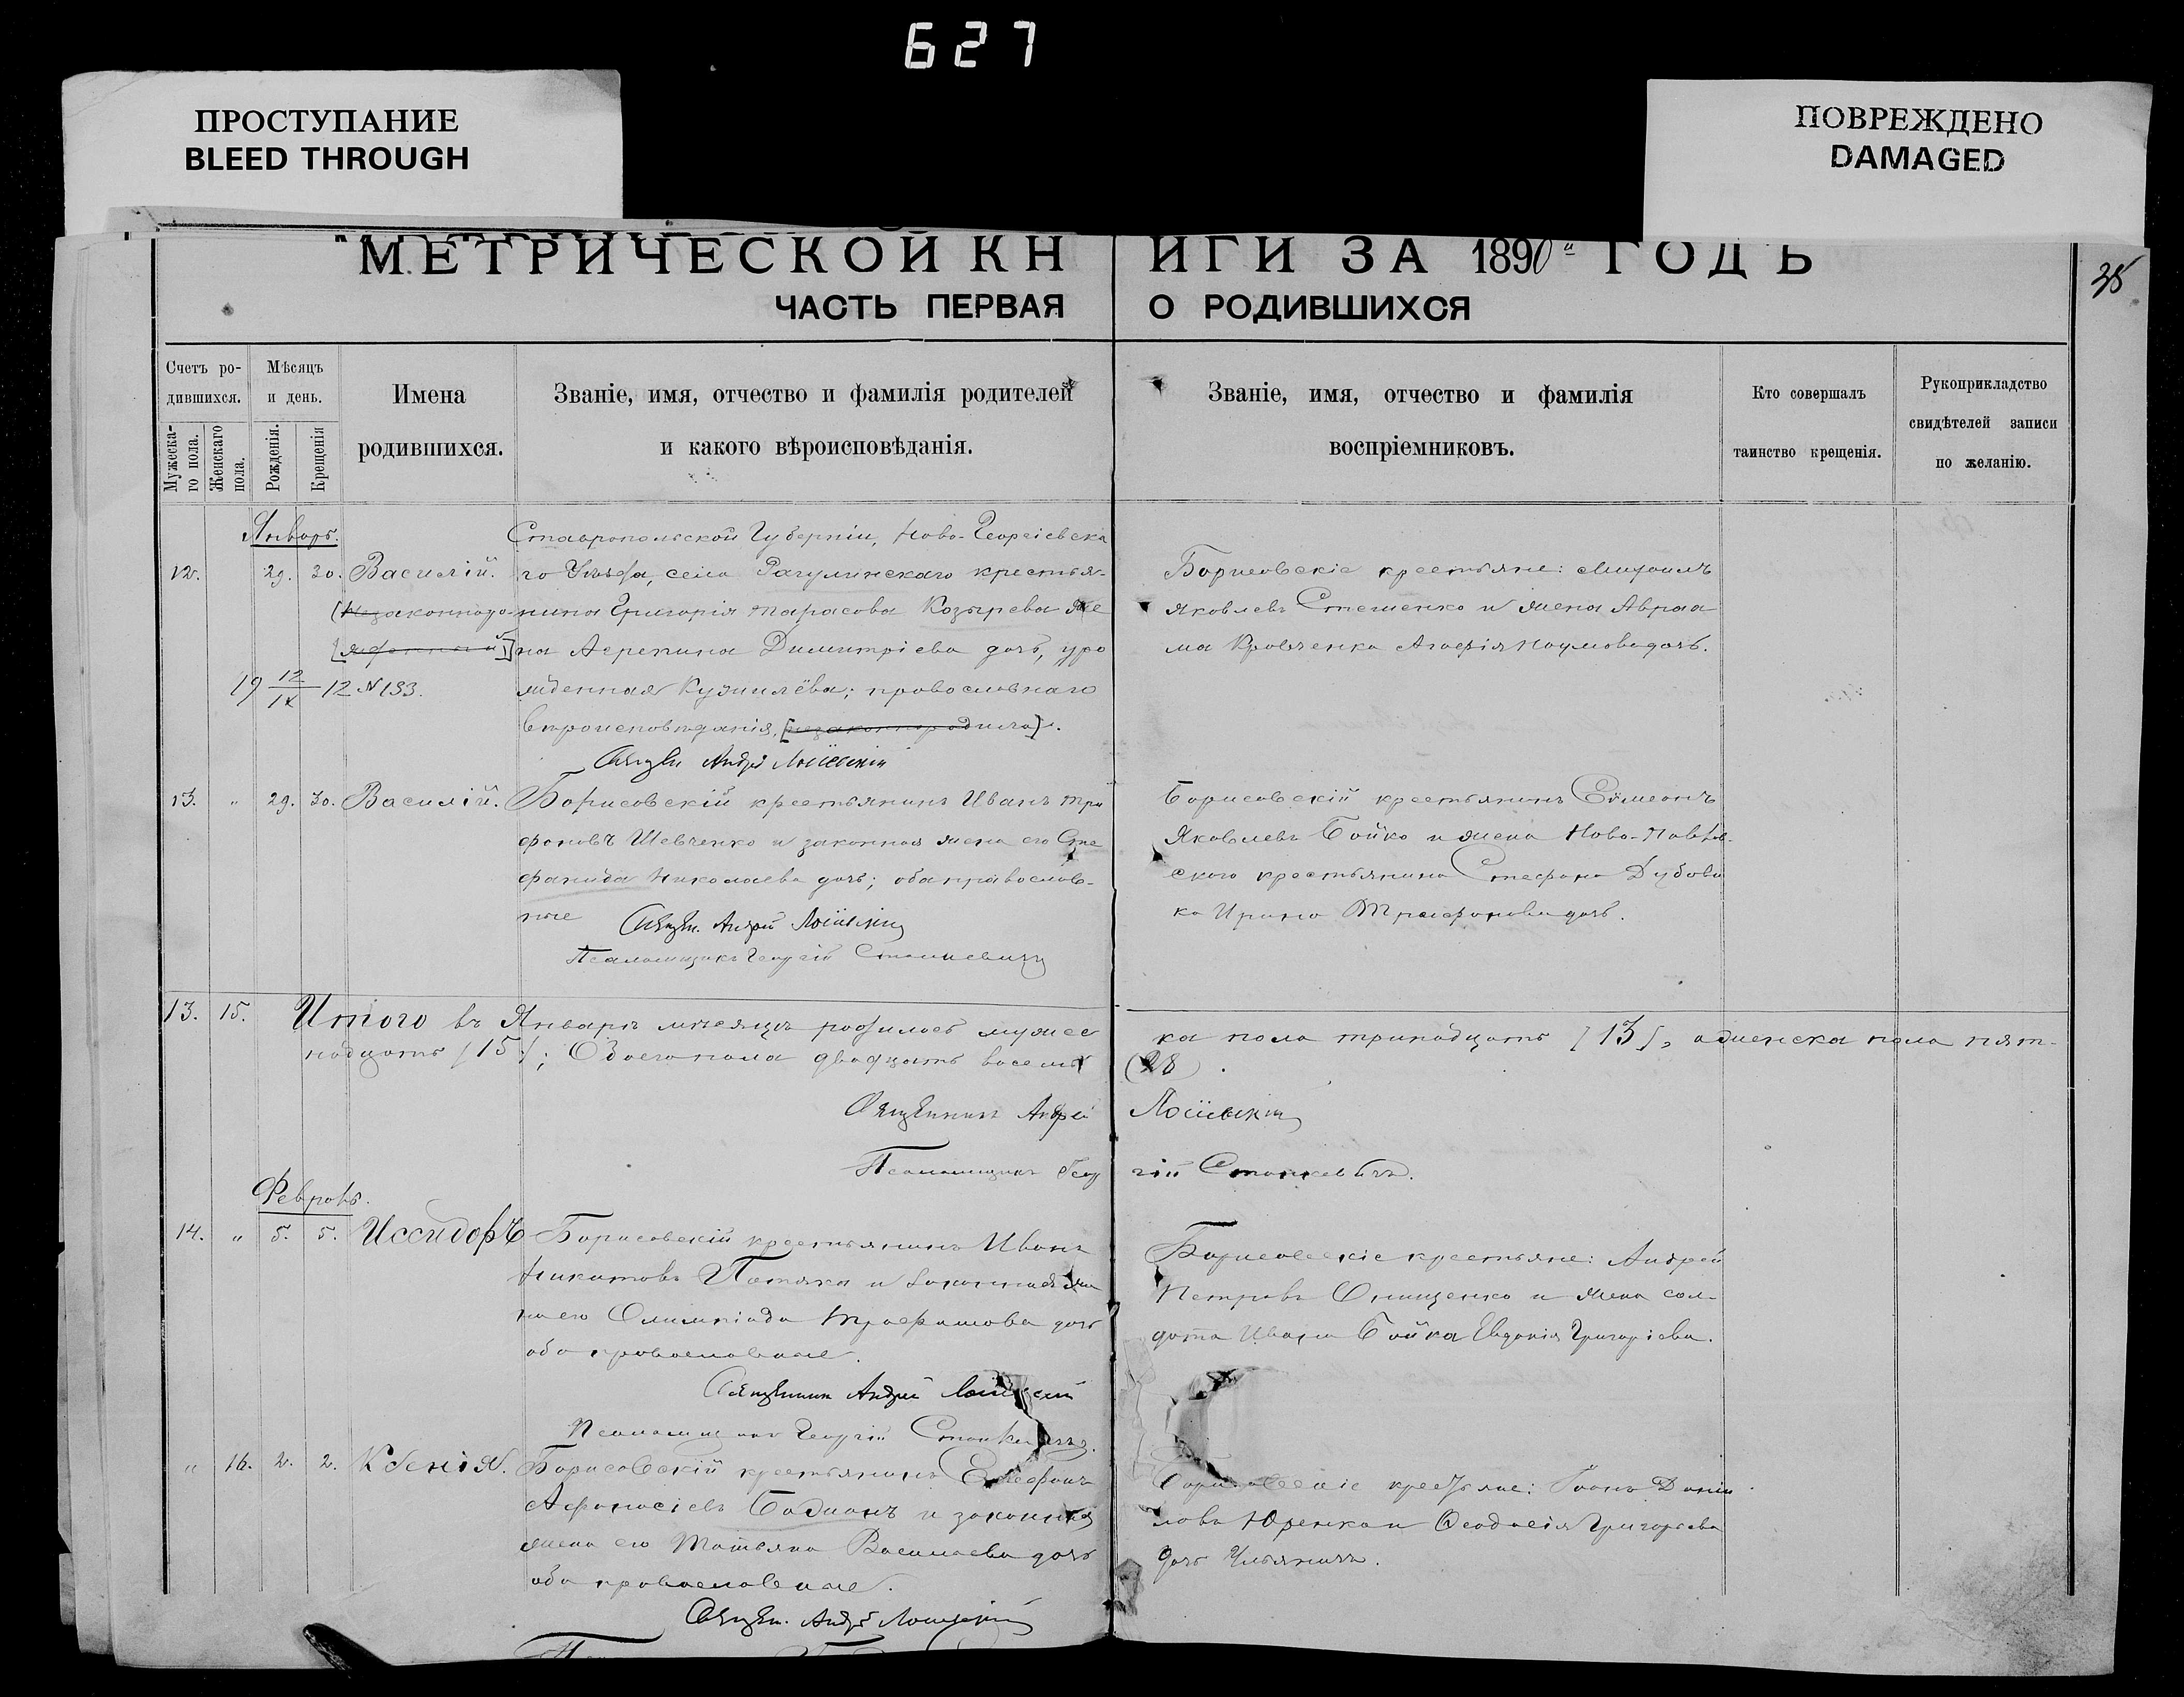 627
ПРОСТУПАНИЕ
BLEED THROUGH
ПОВРЕЖДЕНО
DAMAGED
МЕТРИЧЕСКОЙ КНИГИ ЗА 1890й ГОДЪ
38
ЧАСТЬ ПЕРВАЯ О РОДИВШИХСЯ
Счетъ ро-
дившихся.
Мужеска-
го пола.
Женскаго
пола.
Мѣсяцъ
и день.
Рожденія.
Крещенія
Имена
родившихся.
Званіе, имя, отчество и фамилія родителей
и какого вѣроисповѣданія.
Званіе, имя, отчество и фамилія
воспріемниковъ.
Кто совершалъ
таинство крещенія.
Рукоприкладство
свидѣтелей записи
по желанію.
Январь.
12. 29. 30. Василій.
19 12/IX 12 № 133.
Ставропольской Губерніи, Ново-Георгіевска
го Уѣзда, села Рагулинскаго крестья-
нина Григорія Тарасова Козырева же
на Агрепина Димитріева дочь, уро
жденная; православнаго
вѣроисповѣданія,
Священ Андрей
Борисовскіе крестьяне: Михаилъ
Яковлевъ Стешенко и жена Авраа
ма Кравченка Агафія Наумова дочь.
13. " 29. 30. Василій.
Борисовскій крестьянинъ Иванъ Три
фоновъ Шевченко и законная жена его Сте
фанида Николаева дочь; оба православ-
ные
Священ. Андрей
Псаломщикъ Георгій Станкевичъ
Борисовскій крестьянинъ Симеонъ
Яковлевъ Бойко и жена Ново-Павлов-
скаго крестьянина Стефана Дубови
ка Ирина Трифонова дочь.
13. 15. Итого въ Январѣ мѣсяцѣ родилось мужес ка пола тринадцать [13], а женска пола пят-
надцать [15]; Обоего пола двадцать восемь (28).
Священникъ Андрей
Псаломщикъ Геор гій Станкевичъ.
Февраль.
14. " 5. 5. Иссидоръ
Борисовскій крестьянинъ Иванъ
Никитовъ Потяка и законная же
на его Олимпіада Трофимова дочь
оба православные.
Священникъ Андрей
Псаломщикъ Георгій
Борисовскіе крестьяне: Андрей
Петровъ Онищенко и жена сол-
дата Ивана Бойка Евдокія Григоріева.
" 16. 2. 2. Ксенія.
Борисовскій крестьянинъ
Афанасіевъ Бодманъ и законная
жена его Татьяна Василіева дочь
оба православные.
Священ. Андрей
Борисовскіе крестьяне: Іоанъ Данiи
ловъ Юренка и Феодосія Григорьева
дочь Ульяничъ.